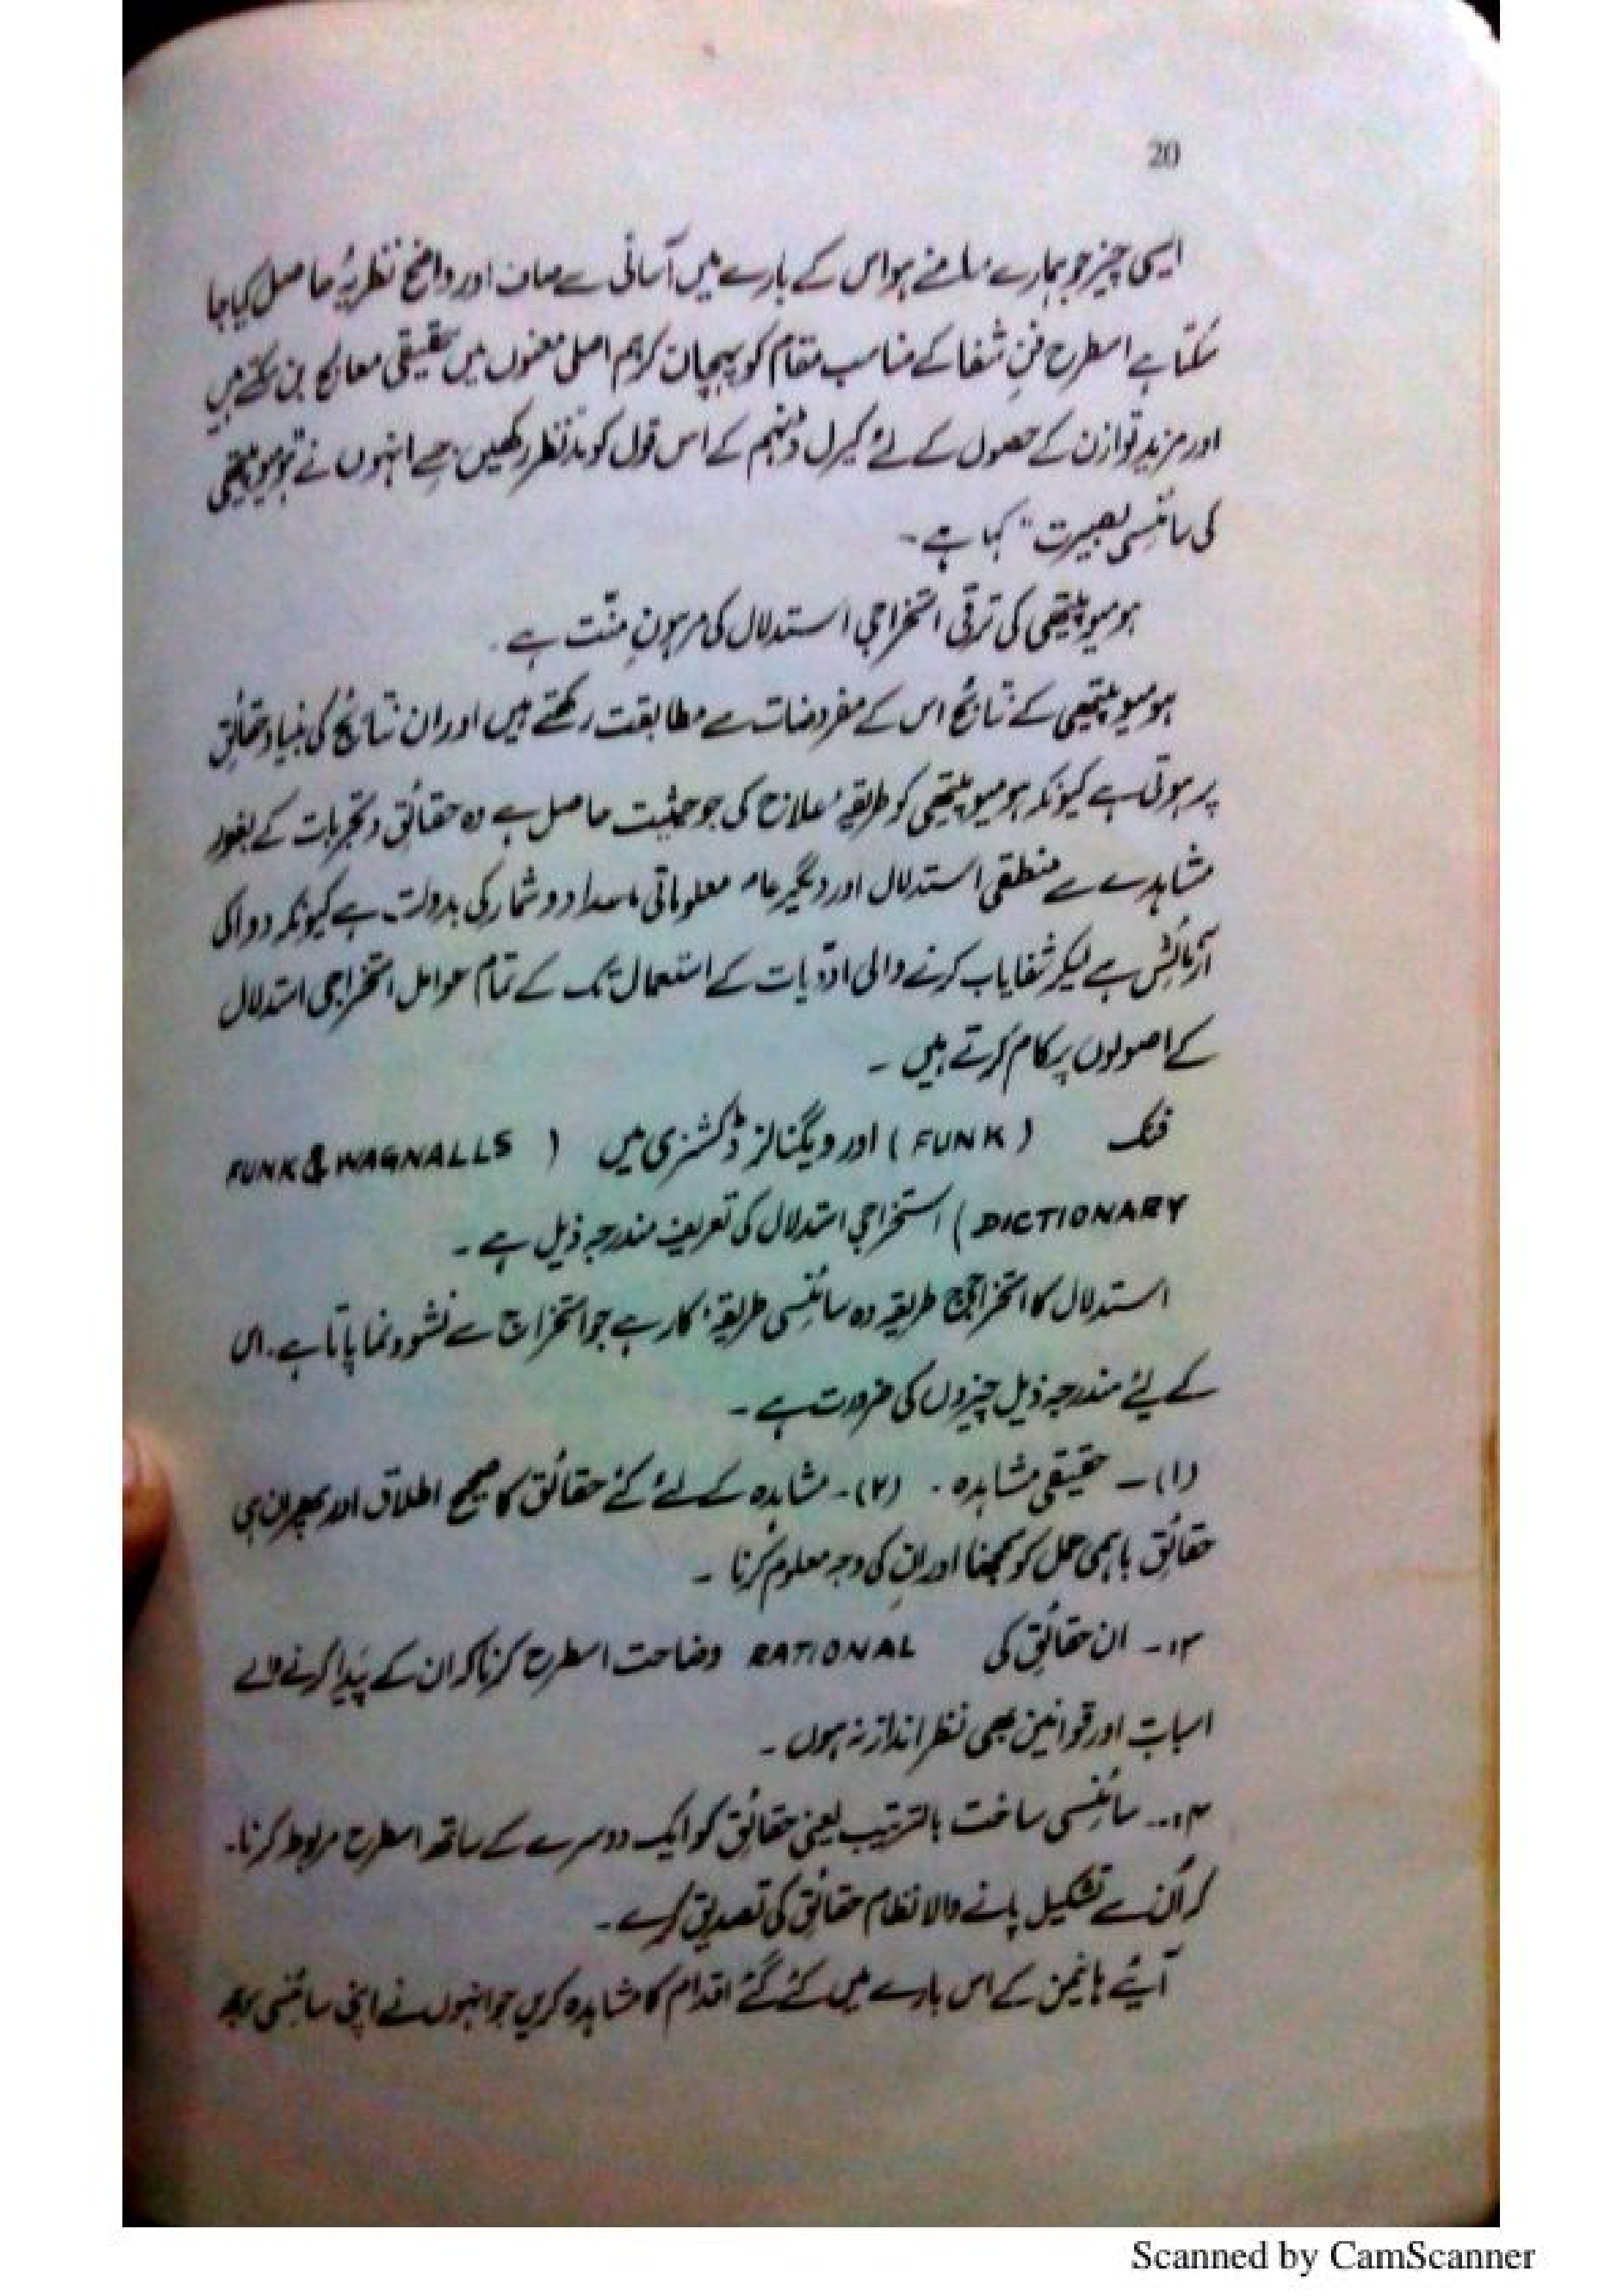 20
ایسی چیز جو ہمارے سامنے ہو اس کے بارے میں آسانی سے صاف اور واضح نظریۂ حاصل کیا جا
سکتا ہے اسطرح فنِ شفا کے مناسب مقام کو پہچان کر ہم اصلی معنوں میں حقیقی معالج بن سکتے ہیں
اور مزید توازن کے حصول کے لئے کیرل ڈنہم کے اس قول کو مدنظر رکھیں جسے انہوں نے ہومیوپیتھی
کی سائنسی بصیرت" کہا ہے۔
ہومیوپیتھی کی ترقی استخراجی استدلال کی مرہونِ منّت ہے۔
ہومیوپیتھی کے نتائج اس کے مفروضات سے مطابقت رکھتے ہیں اور ان نتائج کی بنیاد حقائق
پر ہوتی ہے کیونکہ ہومیوپیتھی کو طریقۂ علاج کی جو حیثیت حاصل ہے وہ حقائق و تجربات کے بغور
مشاہدے سے منطقی استدلال اور دیگر عام معلوماتی اعداد و شمار کی بدولت ہے کیونکہ دوا کی
آزمائش سے لیکر شفایاب کرنے والی ادویات کے استعمال تک کے تمام عوامل استخراجی استدلال
کے اصولوں پر کام کرتے ہیں ۔
فنک (FUNK) اور ویگنالز ڈکشنری میں (FUNK & WAGNALLS
DICTIONARY) استخراجی استدلال کی تعریف مندرجہ ذیل ہے ۔
استدلال کا استخراجی طریقہ وہ سائنسی طریقۂ کار ہے جو استخراج سے نشوونما پاتا ہے۔ اس
کے لیئے مندرجہ ذیل چیزوں کی ضرورت ہے ۔
(۱)۔ حقیقی مشاہدہ ۔ (۲)۔ مشاہدہ کے لئے گئے حقائق کا صحیح اطلاق اور پھر ان ہی
حقائق باہمی عمل کو سمجھنا اور ان کی وجہ معلوم کرنا ۔
۳:۔ ان حقائق کی RATIONAL وضاحت اسطرح کرنا کہ ان کے پیدا کرنے والے
اسباب اور قوانین بھی نظر انداز نہ ہوں ۔
۴:۔ سائنسی ساخت بالترتیب یعنی حقائق کو ایک دوسرے کے ساتھ اسطرح مربوط کرنا۔
کہ اُن سے تشکیل پانے والا نظام حقائق کی تصدیق کرے ۔
آئیے ہانیمن کے اس بارے میں کئے گئے اقدام کا مشاہدہ کریں جو انہوں نے اپنی سائنسی
Scanned by CamScanner